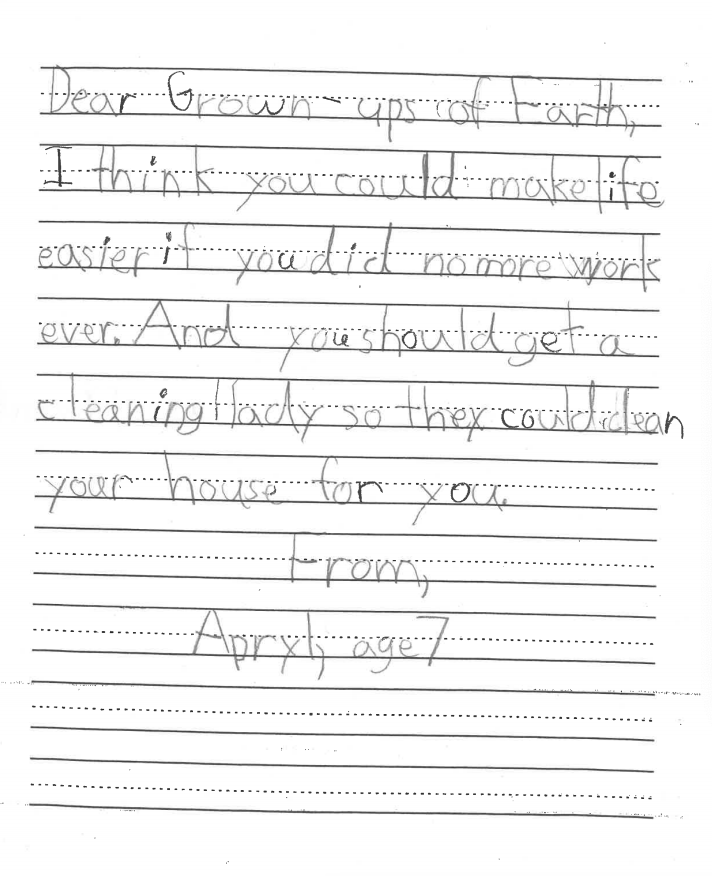 Dear Grown-ups of Earth,
I think you could make life
easier if you did no more work
ever. And you should get a
cleaning lady so they could clean
your house for you.
From,
Apryl, age 7